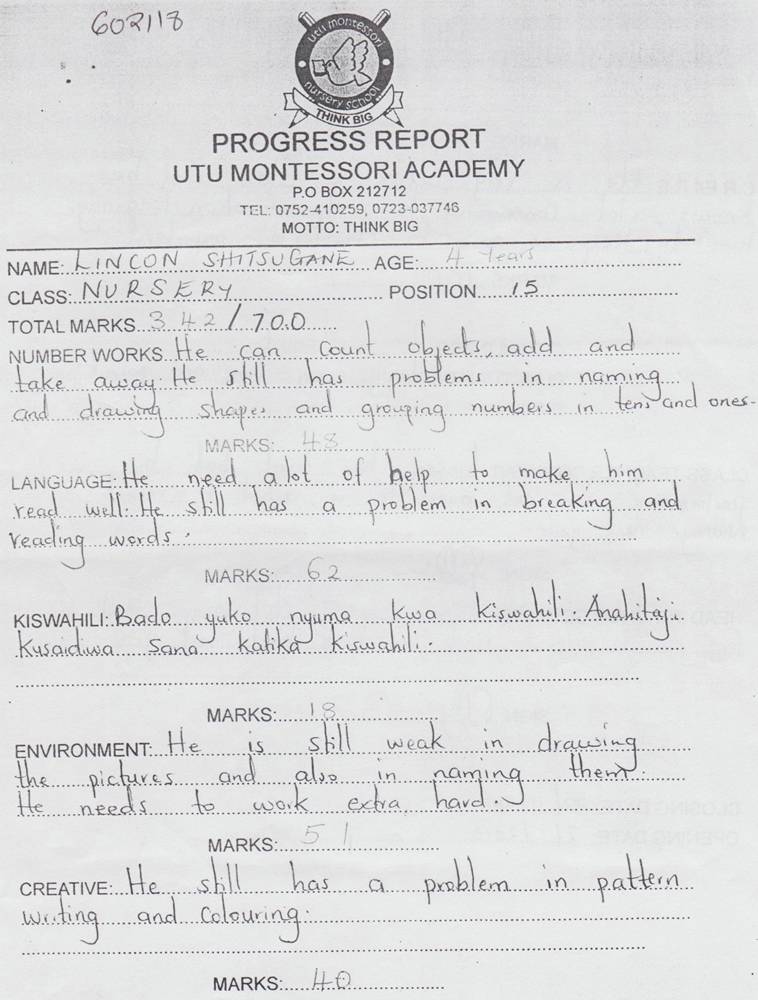 602118
utu montessori
nursery school
THINK BIG
PROGRESS REPORT
UTU MONTESSORI ACADEMY
P.O BOX 212712
TEL: 0752-410259, 0723-037746
MOTTO: THINK BIG
NAME: LINCON SHITSUGANE AGE: 4 Years
CLASS: NURSERY POSITION 15
TOTAL MARKS 342/700
NUMBER WORKS He can count objects, add and
take away. He still has problems in naming
and drawing shapes and grouping numbers in tens and ones.
MARKS: 48
LANGUAGE: He need a lot of help to make him
read well. He still has a problem in breaking and
reading words.
MARKS: 62
KISWAHILI: Bado yuko nyuma kwa kiswahili. Anahitaji
kusaidiwa sana katika kiswahili.
MARKS: 18
ENVIRONMENT: He is still weak in drawing
the pictures and also in naming them.
He needs to work extra hard.
MARKS: 51
CREATIVE: He still has a problem in pattern
writing and colouring.
MARKS: 40